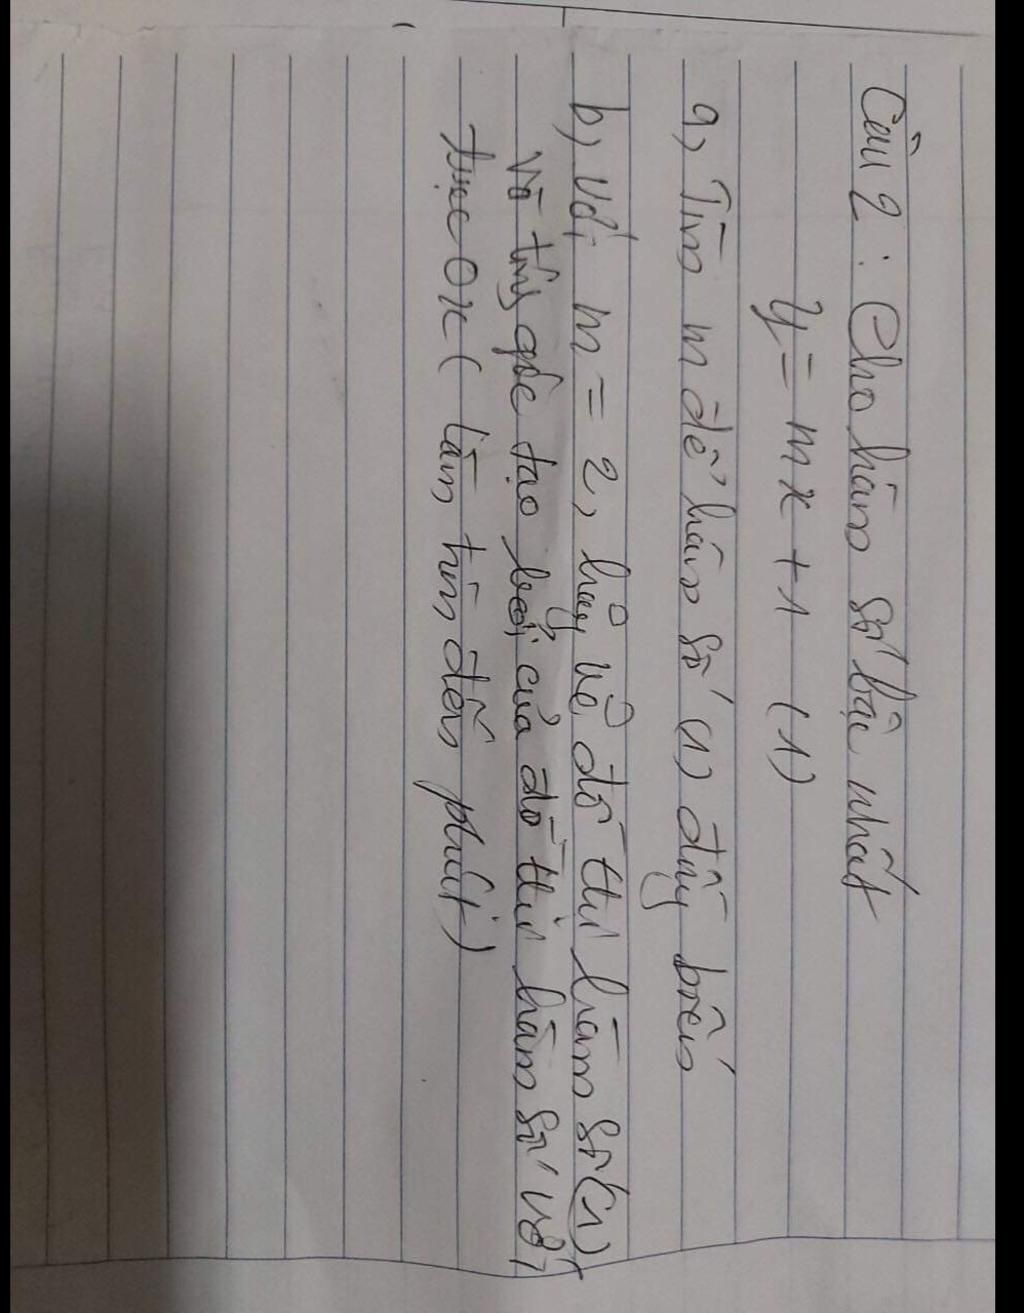 Câu 2: Cho hàm số bậc nhất
y = mx + 1 (1)
a, Tìm m để hàm số (1) đồng biến
b, Với m = 2, hãy vẽ đồ thị hàm số (1)
và tính góc tạo bởi của đồ thị hàm số với
trục Ox ( làm tròn đến phút)